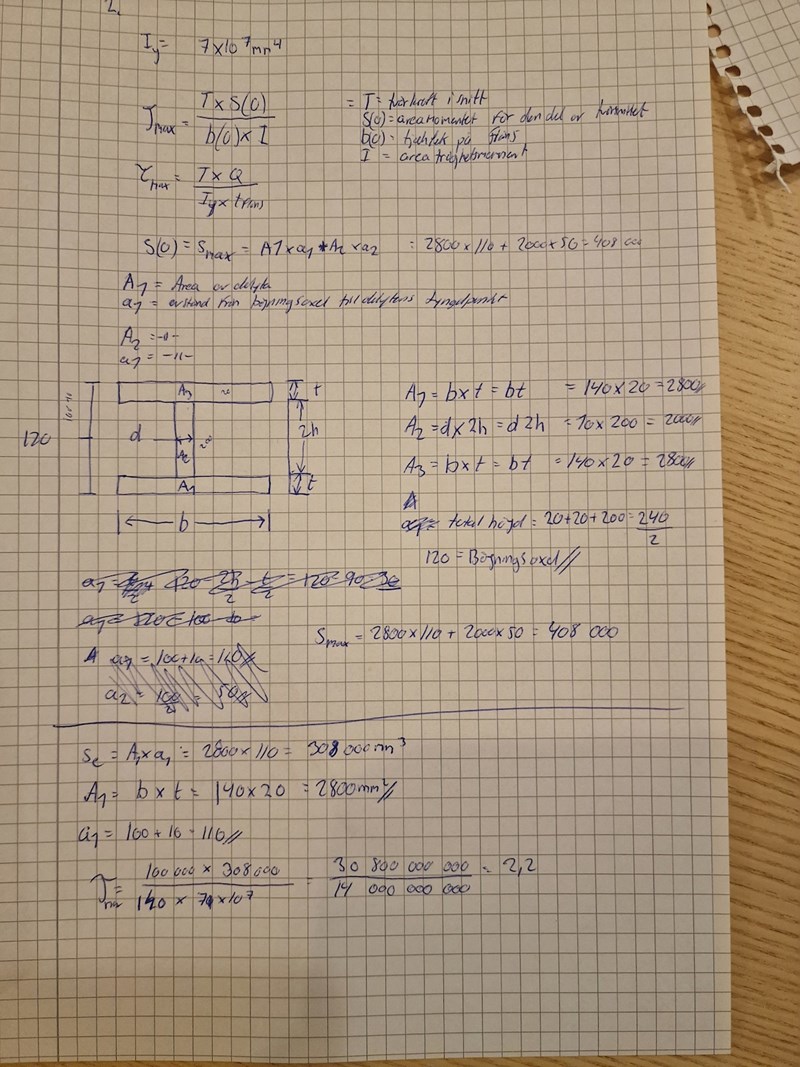 2.
Iy = 7×10⁷ mm⁴
τmax = T×S(0) / b(0)×I
= T = tvärkraft i snitt
S(0) = areamomentet för den del av tvärsnittet
b(0) = tjocklek på fläns
I = areatröghetsmoment
τmax = T×Q / Iy×tfläns
S(0) = Smax = A1×a1+A2×a2 = 2800×110 + 2000×50 = 408 000
A1 = Area av delyta
a1 = avstånd från böjningsaxel till delytans tyngdpunkt
A2 = -11-
a1 = -11-
120
A3
d
A2
A1
b
t
2h
t
A1 = b×t = bt = 140×20 = 2800
A2 = d×2h = d2h = 10×200 = 2000
A3 = b×t = bt = 140×20 = 2800
total höjd = 20+20+200 = 240 / 2
120 = Böjningsaxel
Smax = 2800×110 + 2000×50 = 408 000
a2 = 100/2 = 50
Sc = A1×a1 = 2800×110 = 308 000 mm³
A1 = b×t = 140×20 = 2800mm²
a1 = 100+10 = 110
100 000 × 308 000 = 30 800 000 000 = 2,2
14 000 000 000